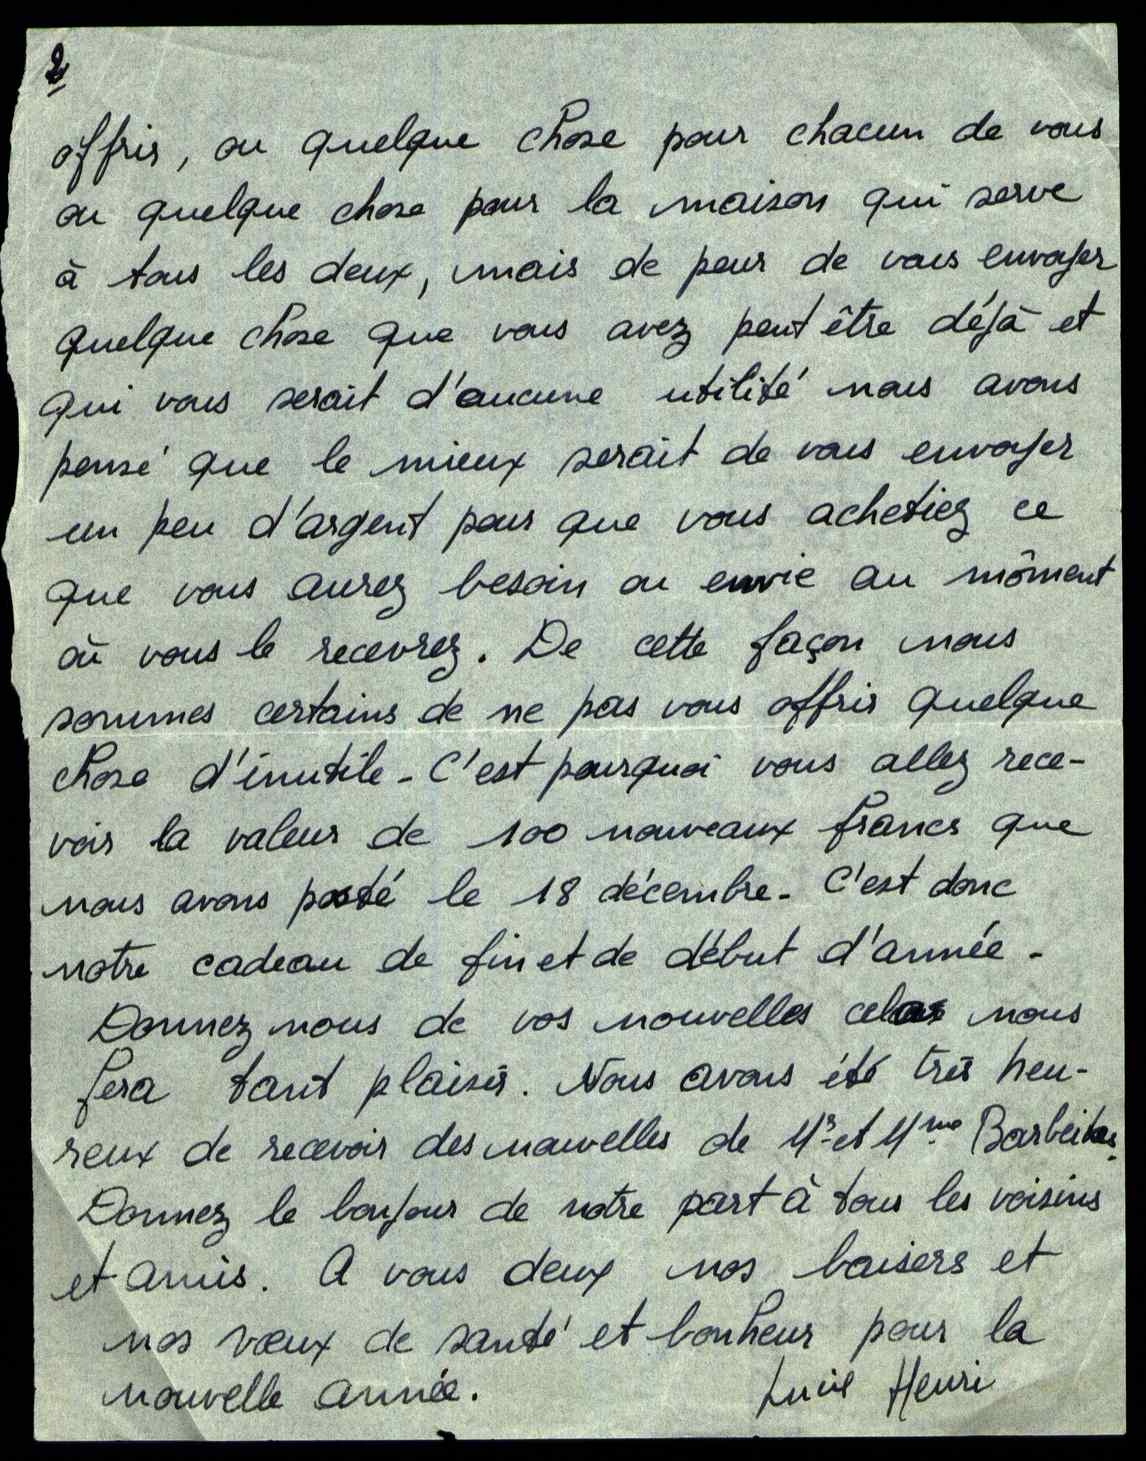 2
offrir, ou quelque chose pour chacun de vous
ou quelque chose pour la maison qui serve
à tous les deux, mais de peur de vous envoyer
quelque chose que vous avez peut être déjà et
qui vous serait d'aucune utilité nous avons
pensé que le mieux serait de vous envoyer
un peu d'argent pour que vous achetiez ce
que vous aurez besoin ou envie au môment
où vous le recevrez. De cette façon nous
sommes certains de ne pas vous offrir quelque
chose d'inutile - C'est pourquoi vous allez rece-
voir la valeur de 100 nouveaux francs que
nous avons posté le 18 décembre - C'est donc
notre cadeau de fin et de début d'année -
Donnez nous de vos nouvelles cela nous
fera tant plaisir. Nous avons été très heu-
reux de recevoir des nouvelles de Mr et Mme
Donnez le bonjour de notre part à tous les voisins
et amis. A vous deux nos baisers et
nos vœux de santé et bonheur pour la
nouvelle année. Lucie Henri